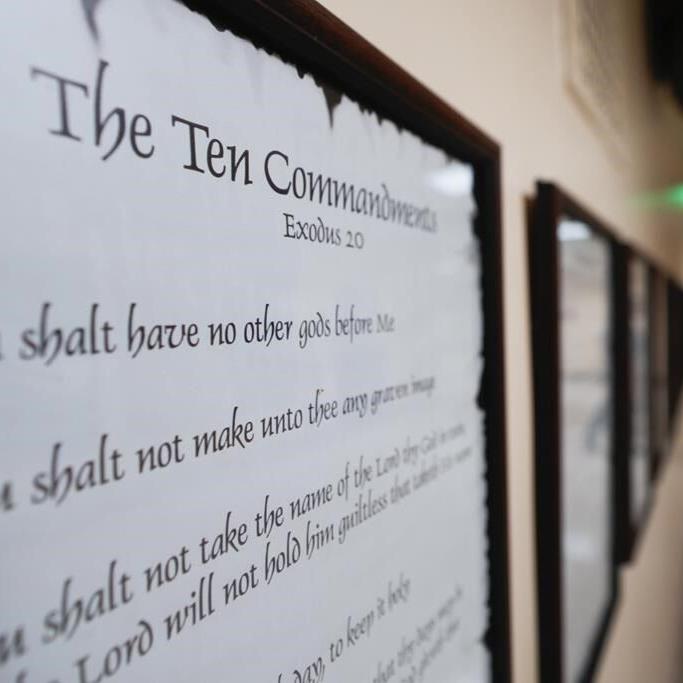 The Ten Commandments
Exodus 20
shalt have no other gods before Me
shalt not make unto thee any graven image
shalt not take the name of the Lord thy God in vain,
Lord will not hold him guiltless that taketh His name
day, to keep it holy
that thy days may be